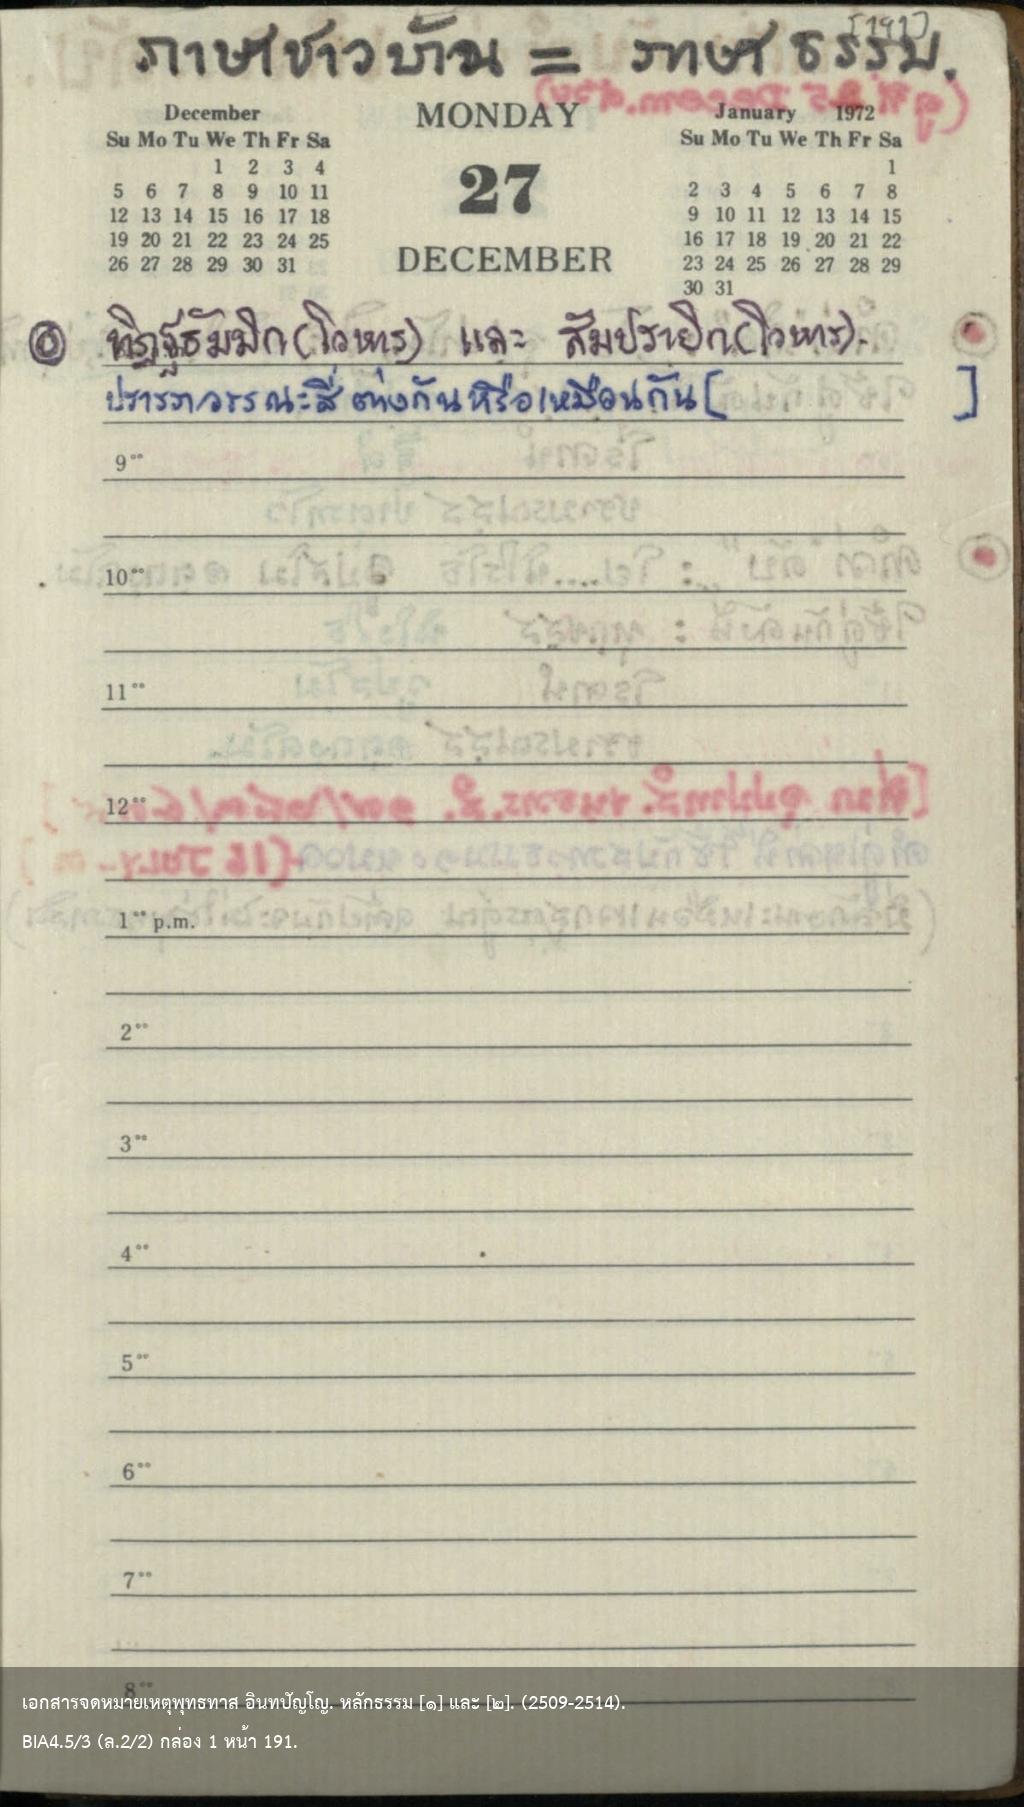 [191]
ภาษาชาวบ้าน = ภาษาธรรม.
December
Su Mo Tu We Th Fr Sa
1 2 3 4
5 6 7 8 9 10 11
12 13 14 15 16 17 18
19 20 21 22 23 24 25
26 27 28 29 30 31
MONDAY
27
DECEMBER
January 1972
Su Mo Tu We Th Fr Sa
1
2 3 4 5 6 7 8
9 10 11 12 13 14 15
16 17 18 19 20 21 22
23 24 25 26 27 28 29
30 31
ทิฏฐธัมมิก(โวหาร) และ สัมปรายิก(โวหาร).
ปรารภวรรณะสี่ ต่างกันหรือเหมือนกัน [ ]
9°°
10°°
11°°
12°°
1°° p.m.
2°°
3°°
4°°
5°°
6°°
7°°
8°°
เอกสารจดหมายเหตุพุทธทาส อินทปัญโญ. หลักธรรม [๑] และ [๒]. (2509-2514).
BIA4.5/3 (ล.2/2) กล่อง 1 หน้า 191.